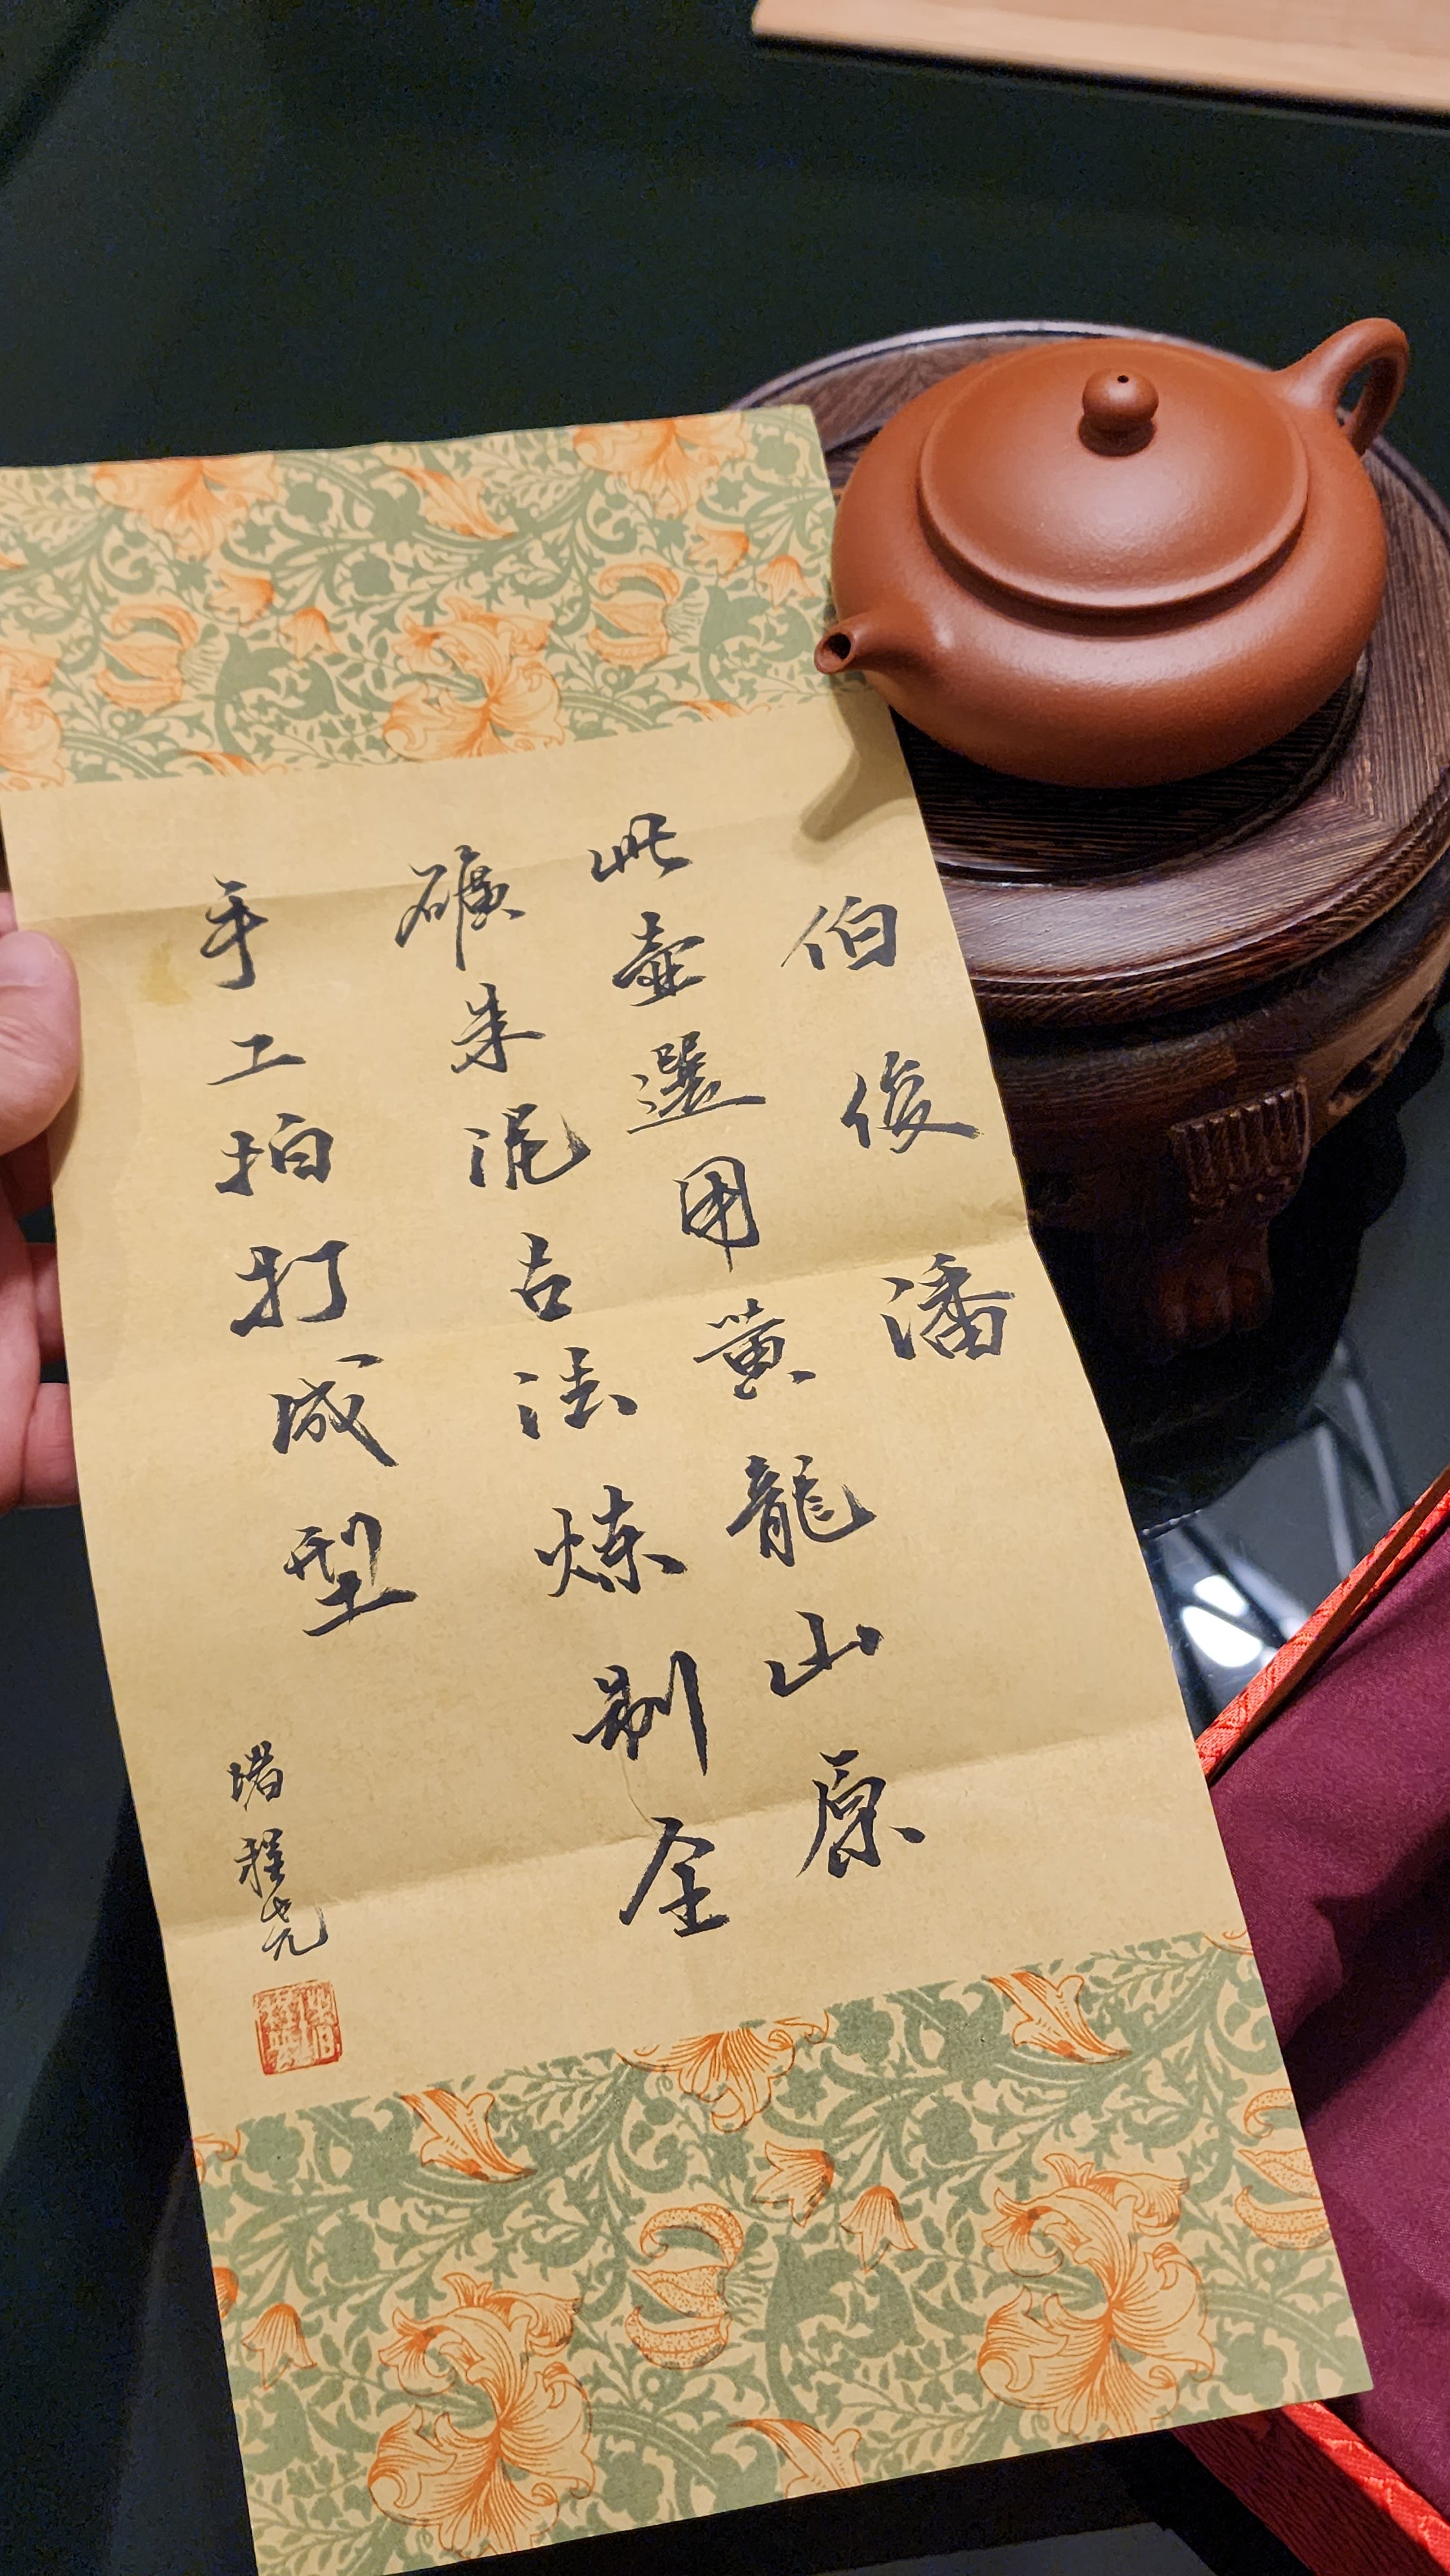 伯俊潘
此壺選用黃龍山原
礦朱泥古法炼制全
手工拍打成型
堵程尧